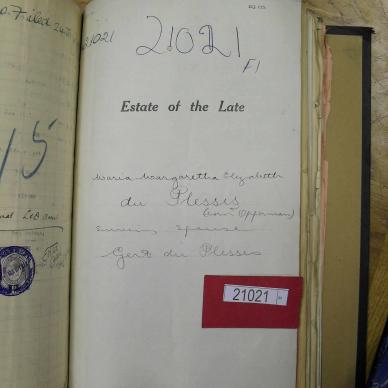 21021
21021
F1
Estate of the Late
Maria Margaretha Elizabeth
du Plessis
(born Opperman)
Spouse
Gert du Plessis
21021
15